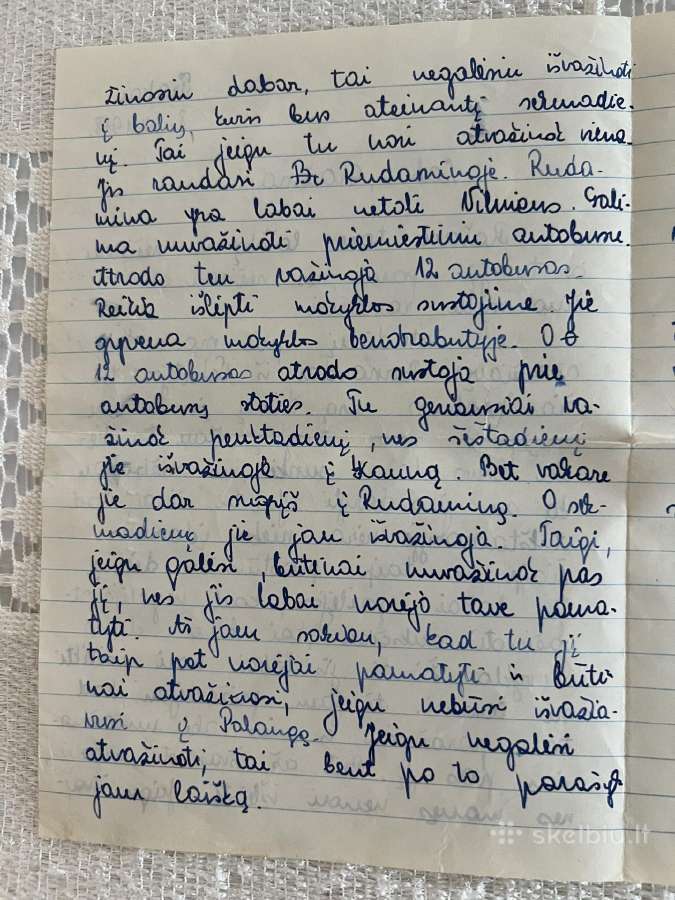 žinosiu dabar, tai negalėsiu išvažinoti
į balių, kuris bus ateinantį sekmadie-
nį. Tai jeigu tu nori atvažinok viena.
Jis randasi Rudaminoje. Ruda-
mina yra labai netoli Vilniaus. Gali-
ma nuvažinoti priemiestiniu autobusu.
Atrodo ten važinoja 12 autobusas
Reikia išlipti mokyklos sustojime. Jie
gyvena mokyklos bendrabutyje. O
12 autobusas atrodo sustoja prie
autobusų stoties. Tu geriausiai va-
žinok penktadienį, nes šeštadienį
jie išvažinoja į Kauną. Bet vakare
jie dar sugrįš į Rudaminą. O sek-
madienį jie jau išvažinoja. Taigi,
jeigu galėsi, būtinai nuvažinok pas
jį, nes jis labai norėjo tave pama-
tyti. Aš jam sakiau, kad tu jį
taip pat norėjai pamatyti ir būti-
nai atvažinosi, jeigu nebūsi išvažia-
vusi į Palangą. Jeigu negalėsi
atvažinoti, tai bent po to parašyk
jam laišką.
skelbiu.lt